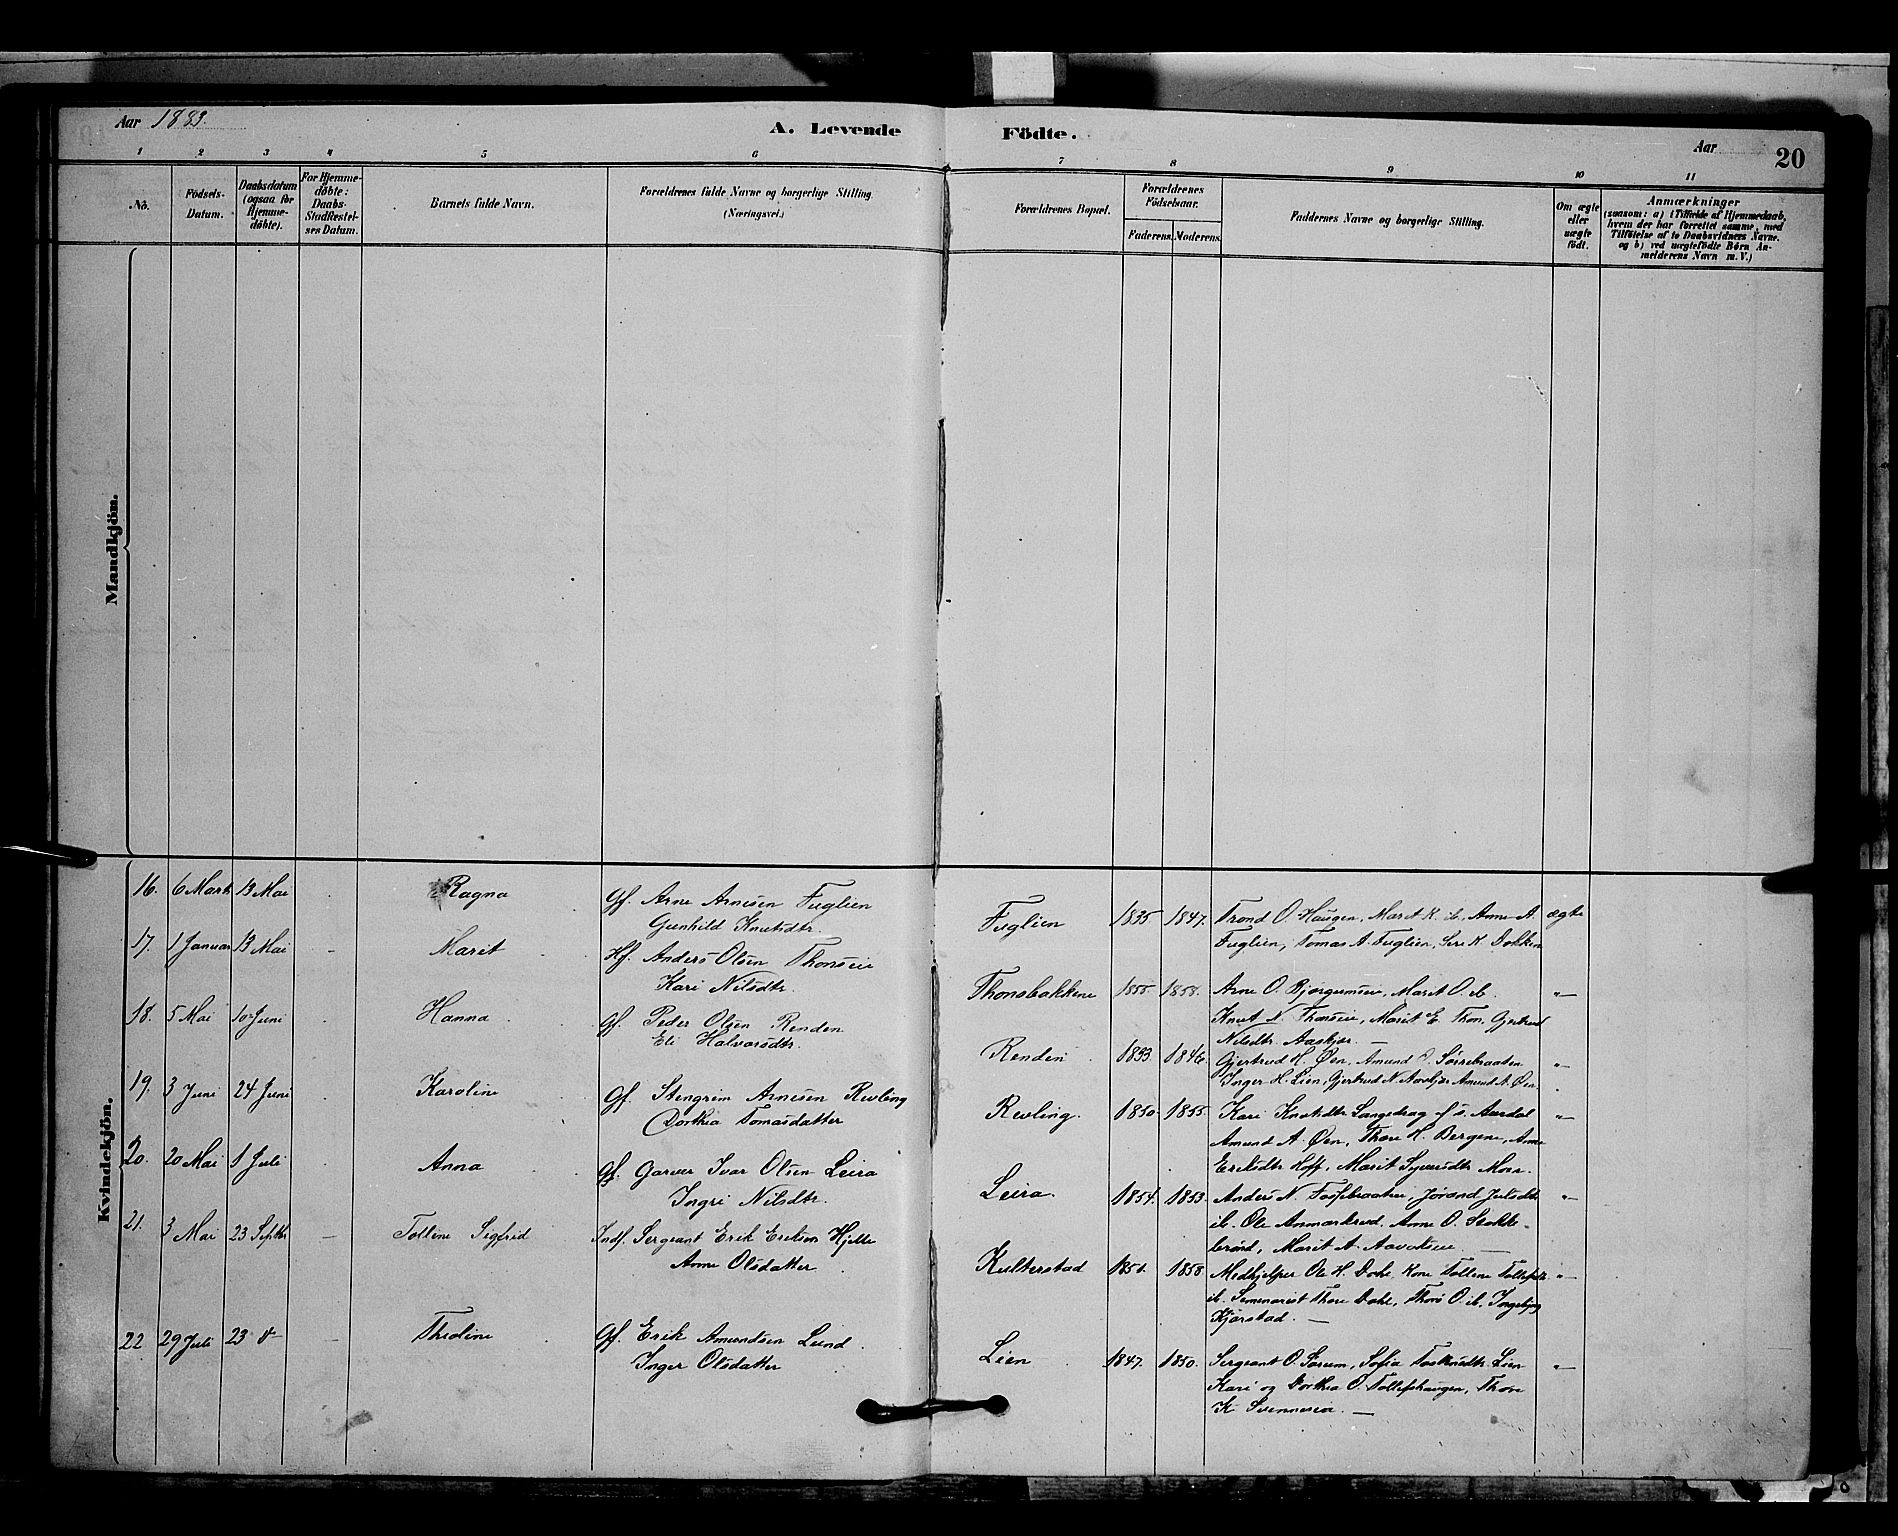 Aar 1883.
A. Levende Födte.
Aar
20
1 2 3 4 5 6 7 8 9 10 11
No.
Födsels-Datum.
Daabsdatum (ogsaa for Hjemme-døbte).
For Hjemme-døbte: Daabs-Stadfæstel-ses Datum.
Barnets fulde Navn.
Forældrenes fulde Navne og borgerlige Stilling.
(Næringsvei.)
Forældrenes Bopæl.
Forældrenes Födselsaar.
Faderens. Moderens.
Faddernes Navne og borgerlige Stilling.
Om ægte eller uægte födt.
Anmærkninger
(saasom: a) i Tilfælde af Hjemmedaab,
hvem der har forrettet samme, med
Tilföielse af to Daabsvidners Navne,
og b) ved uægtefödte Börn An-
melderens Navn m.V.)
Mandkjön.
Kvindekjön.
16. 6 Marts 13 Mai Ragna Gf. Arne Arnesen Fuglien
Gunhild Knutsdtr.
Fuglien 1835 1847. Trond O. Haugen, Marit K. ib, Anne A. ægte
Fuglien, Tomas A. Fuglien, Siri K. Dokken
17. 1 Januar 13 Mai Marit Hf. Anders Olsen Thonseie
Kari Nilsdtr.
Thonsbakkene 1855. 1858. Arne O. Bjørgumseie, Marit O. ib. "
Knut N. Thonseie, Marit E. Thon, Gjertrud
Nilsdtr. Aaskjær.
18. 5 Mai 10 Juni Hanna Gf. Peder Olsen Renden
Eli Halvorsdtr.
Renden 1833 1846. Gjertrud H. Øen, Amund O. Sørrebraaten "
Inger H. Lien, Gjertrud N. Aaskjær Amund A. Øen.
19. 3 Juni 24 Juni Karoline Gf. Stengrim Arnesen Revling
Dorthea Tomasdatter
Revling. 1850. 1855. Kari Knutsdtr. Langedrag af s. Aurdal "
Amund A. Øen, Thore H. Bergene, Anne
Eriksdtr Hoff, Marit Syversdtr Moen.
20. 20 Mai 1 Juli Anna Gf. Garver Ivar Olsen Leira
Ingri Nilsdtr.
Leira. 1854. 1853. Anders N. Fossbraaten, Jørand Julsdtr "
ib. Ole Anmarkrud, Anne O. Stokke-
brænd, Marit A.
21. 3 Mai 23 Septbr Tolline Sigfrid Indf. Sergeant Erik Eriksen Hjelle
Anne Olsdatter
Kulterstad 1851. 1858. Medhjelper Ole H. Dokk, Kone Tolline Tollefsdtr "
ib. Seminarist Thore Dokk, Thore O. ib, Ingebjørg
Kjørstad.
22 29 Juli 23 d Theoline Gf. Erik Amundsen Lund.
Inger Olsdatter
Lien 1847. 1850. Sergeant O. Garum, Sofia Torkildsdtr. Lien "
Kari og Dorthea O. Tollefshaugen, Thore
K.